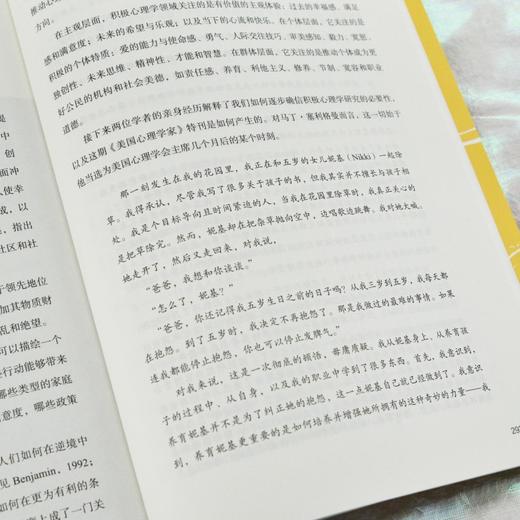 方向。
在主观层面，积极心理学领域关注的是有价值的主观体验：过去的幸福感、满
感和满意度；未来的希望与乐观；以及当下的心流和快乐。在个体层面，它关注的是
积极的个体特质：爱的能力与使命感、勇气、人际交往技巧、审美感知、毅力、宽恕、
独创性、未来思维、精神性、才能和智慧。在群体层面，它关注的是推动个体成为更
好公民的机构和社会美德，如责任感、养育、利他主义、修养、节制、宽容和职业
道德。
接下来两位学者的亲身经历解释了我们如何逐步确信积极心理学研究的必要性，
以及这期《美国心理学家》特刊是如何产生的。对马丁·塞利格曼而言，这一切始于
他当选为美国心理学会主席几个月后的某个时刻。
那一刻发生在我的花园里，我正在和五岁的女儿妮基（Nikki）一起除
草。我得承认，尽管我写了很多关于孩子的书，但我其实并不擅长与孩子相
处。我是个目标导向且时间紧迫的人，当我在花园里除草时，我真正关心的
是把草除完。然而，妮基却在把杂草抛向空中，边唱歌边跳舞。我对她大喊。
她走开了，然后又走回来，对我说，
“爸爸，我想和你谈谈。”
“怎么了，妮基？”
“爸爸，你还记得我五岁生日之前的日子吗？从我三岁到五岁，我每天都
在抱怨。到了五岁时，我决定不再抱怨了。那是我做过的最难的事情。如果
连我都能停止抱怨，你也可以停止发脾气。”
对我来说，这是一次彻底的顿悟，毋庸质疑。我从妮基身上、从养育孩
子的过程中、从自身，以及我的职业中学到了很多东西。首先，我意识到，
养育妮基并不是为了纠正她的抱怨，这一点妮基自己就已经做到了。我意识
到，养育妮基更重要的是如何培养并增强她所拥有的这种奇妙的力量——我
是
中
创
面冲
人使幸
成，以
，指出
社区和社
于领先地位
加其物质财
乱和绝望。
可以描绘一个
些行动能够带来
那些类型的家庭
意度，哪些政策
人们如何在逆境中
见 Benjamin，1992；
如何在更为有利的条
成了一门关